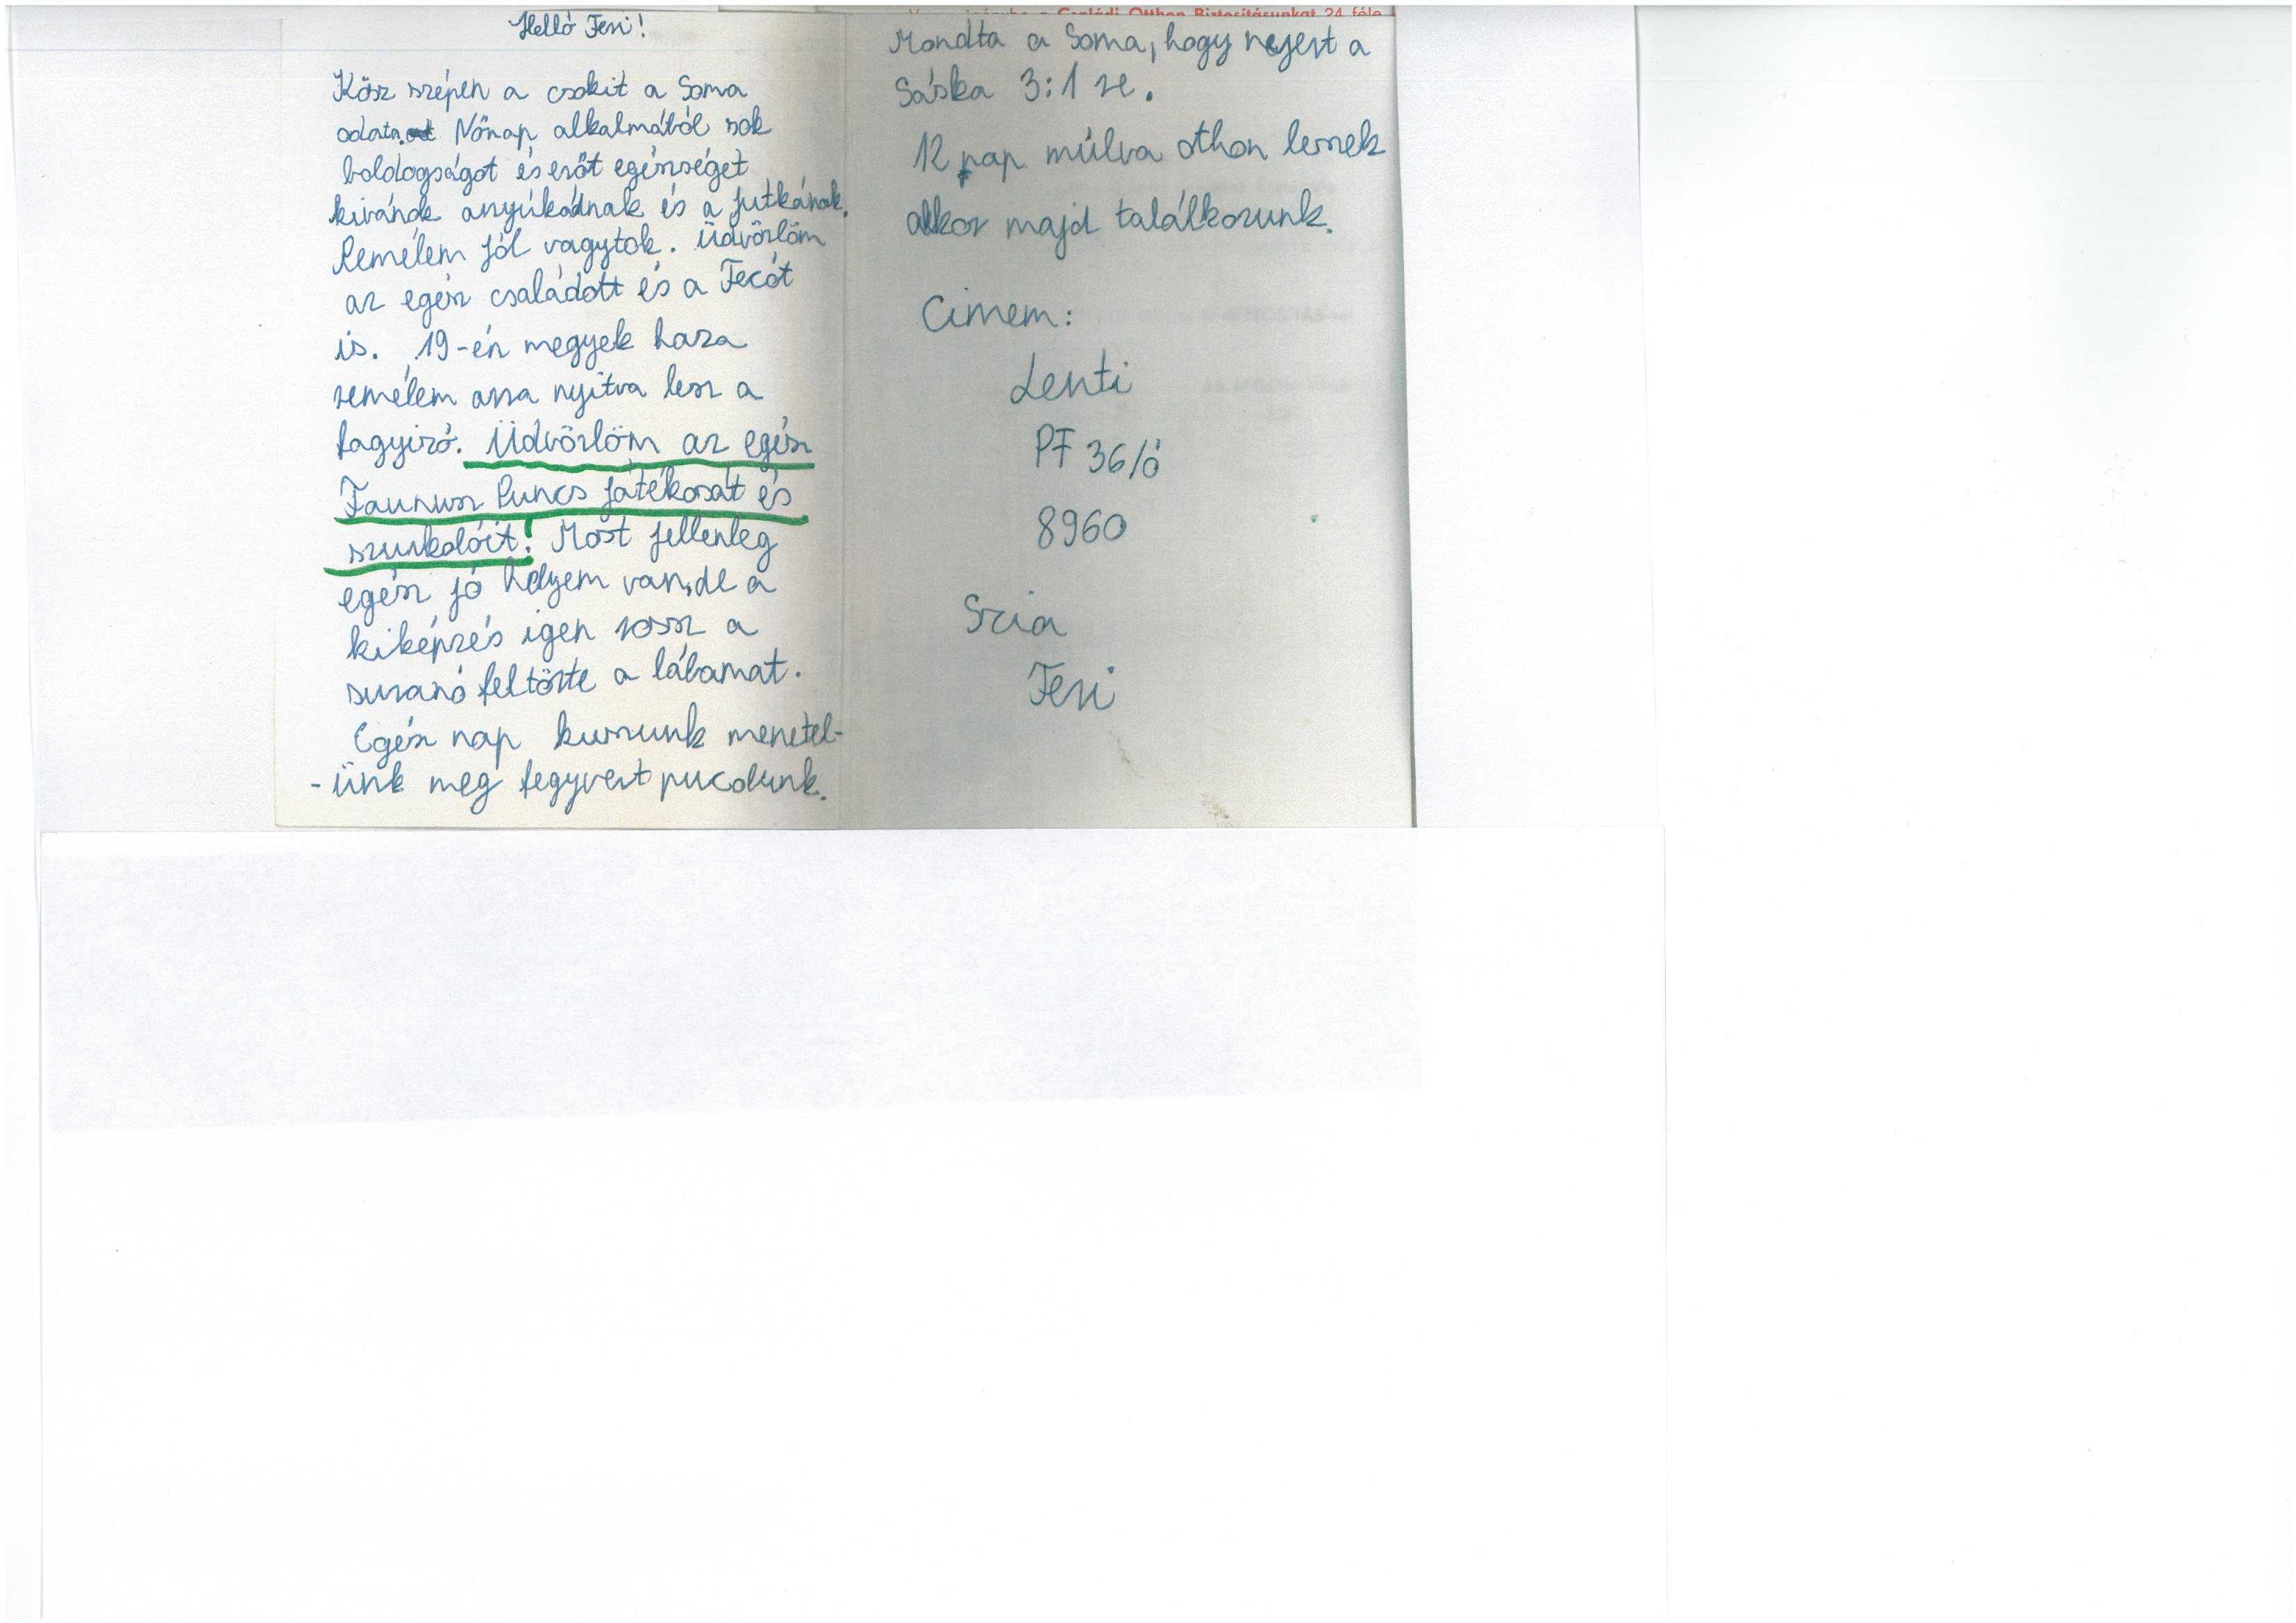 Helló Feri!
Kösz szépen a csokit a Soma
odata. Nőnap alkalmából sok
boldogságot és erőt egészséget
kivánok anyúkádnak és a Jutkának.
Remélem jól vagytok. Üdvözlöm
az egész családott és a Fecót
is. 19-én megyek haza
remélem arra nyitva lesz a
fagyizó. Üdvözlöm az egész
Faunusz Runcs játékosát és
szurkolóit! Most jellenleg
egész jó helyem van, de a
kiképzés igen rossz a
suranó feltörte a lábamat.
Egész nap kuszunk menetel-
-ünk meg fegyvert pucolunk.
Családi Otthon Biztosításunkat 24 féle
Mondta a Soma, hogy nyert a
Sáska 3:1 re.
12 nap múlva othon leszek
akkor majd találkozunk.
Cimem:
Lenti
PF 36/ó
8960
Szia
Feri